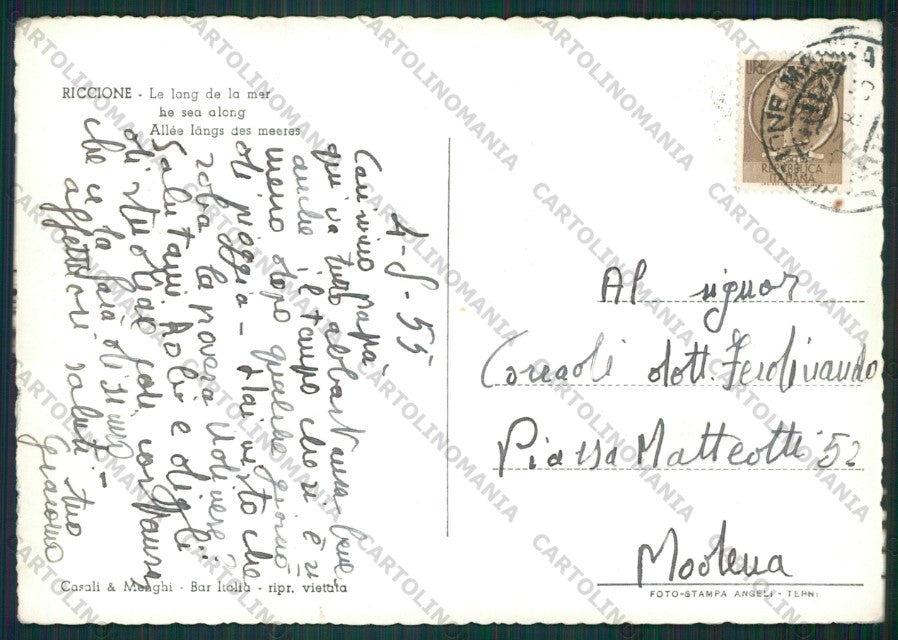 RICCIONE - Le long de la mer
he sea along
Allée längs des meeres
4-8-55
Carissimo papà,
qui va tutto abbastanza bene
anche il tempo che si è ri
messo dopo qualche giorno
di pioggia - Hai visto che
roba la povera Udinese?
Salutami Aolo e digli
di studiare fodi
che ce la farà di sicuro
affettuosi saluti - tuo
Giacomo
LIRE
REPUBBLICA
ITALIANA
Al signor
Corradi dott. Ferdinando
Piazza Matteotti 52
Modena
Casali & Menghi - Bar Italia - ripr. vietata
FOTO-STAMPA ANGELI - TERNI
CARTOLINOMANIA